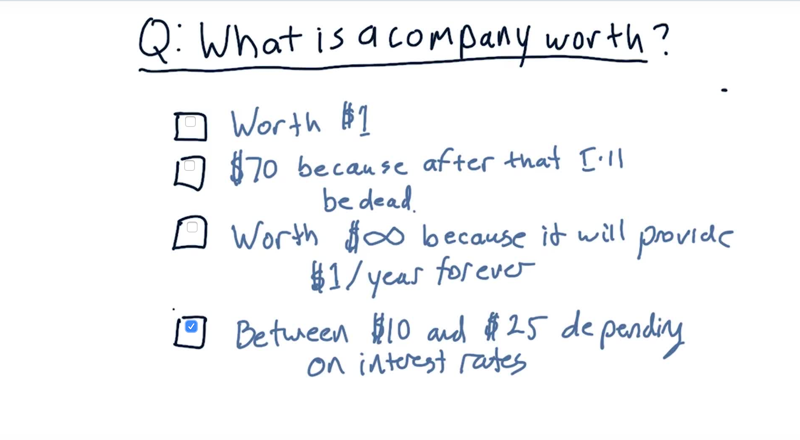 Q: What is a company worth?
Worth $1
$70 because after that I'll
be dead.
Worth $∞ because it will provide
$1/year forever
Between $10 and $25 depending
on interest rates